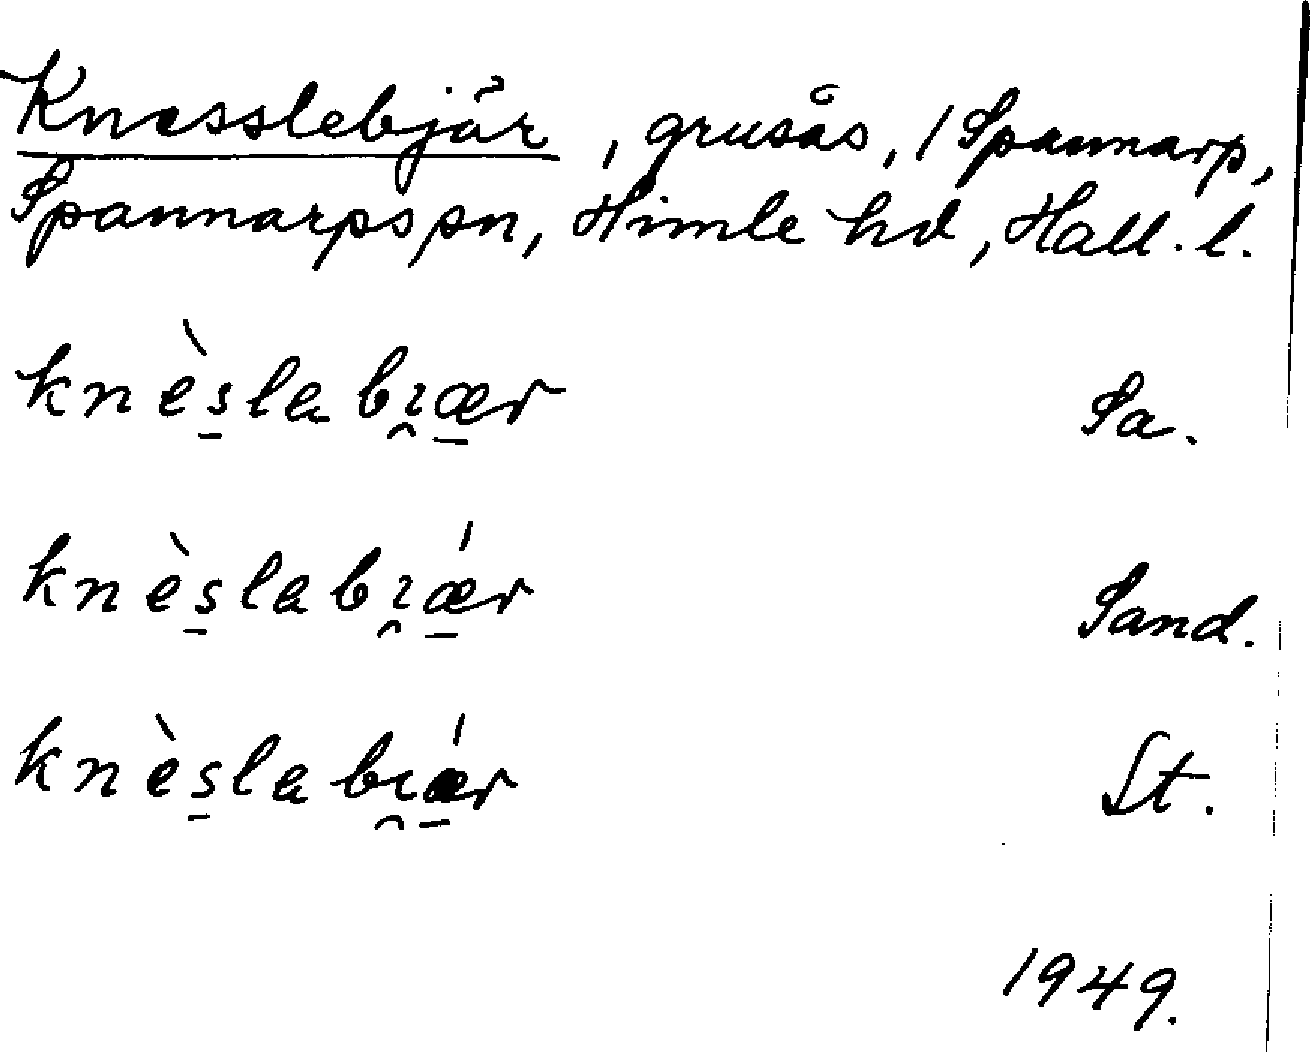 Knesslebjär, grusås, / Spannarp,
Spannarps sn, Himle hd, Hall. l.
knès̱la bı̯æ̱r Sa.
knès̱la bı̯ǽ̱r Sand.
knès̱la bı̯ǽ̱r St.
1949.